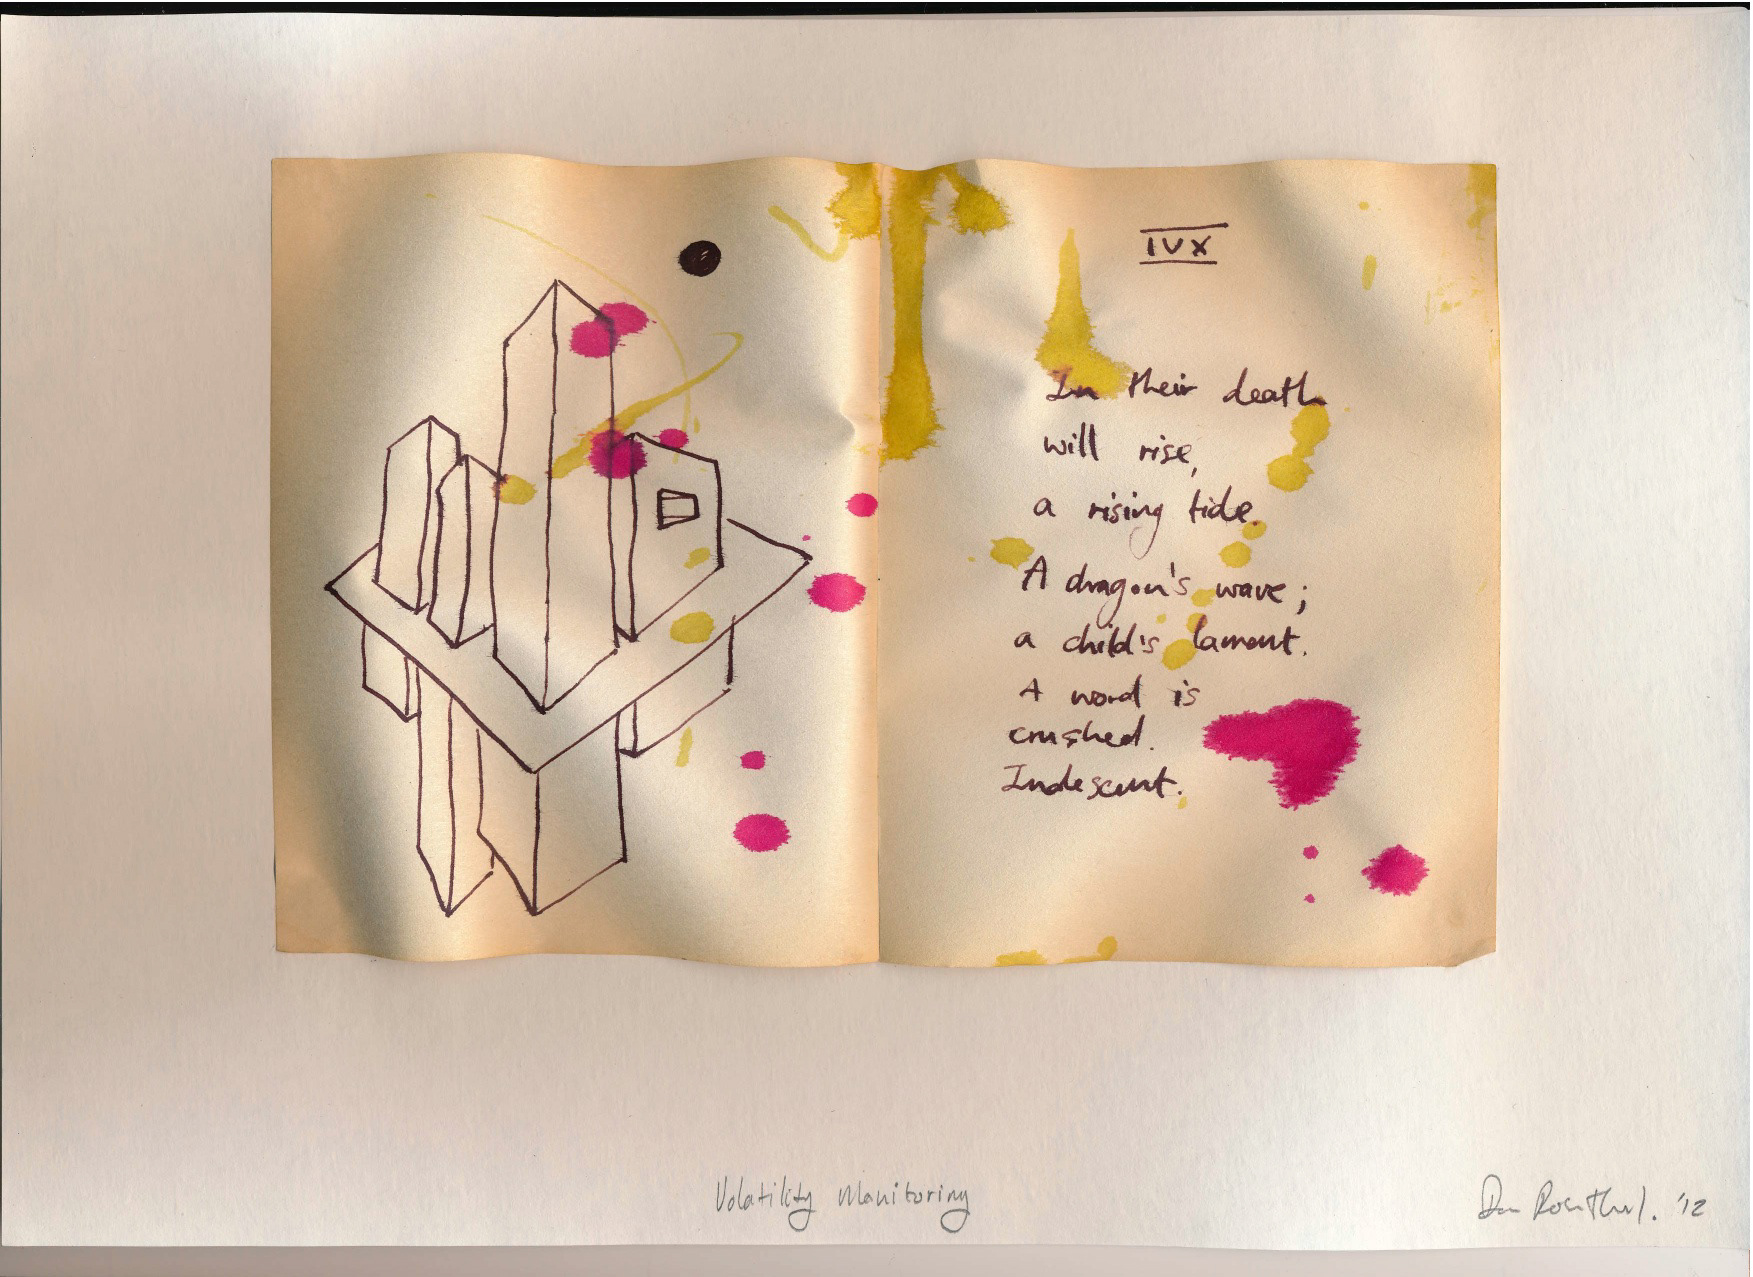 IVX
In their death
will rise,
a rising tide.
A dragon's wave;
a child's lament.
A word is
crushed.
Indescent.
Volatility Monitoring
Dan Rosenthal. '12